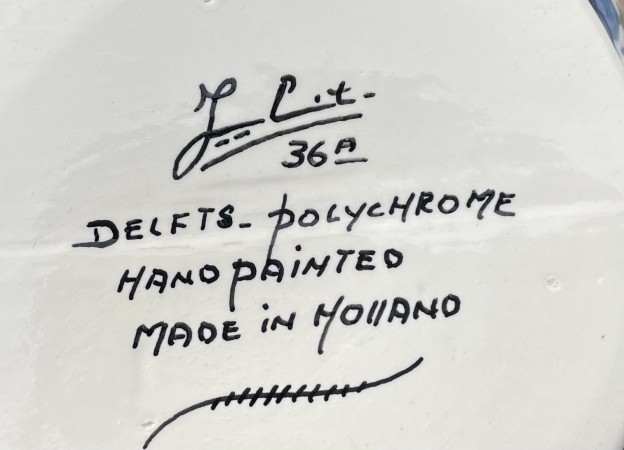 36A
DELFTS - POLYCHROME
HANDPAINTED
MADE IN HOLLAND